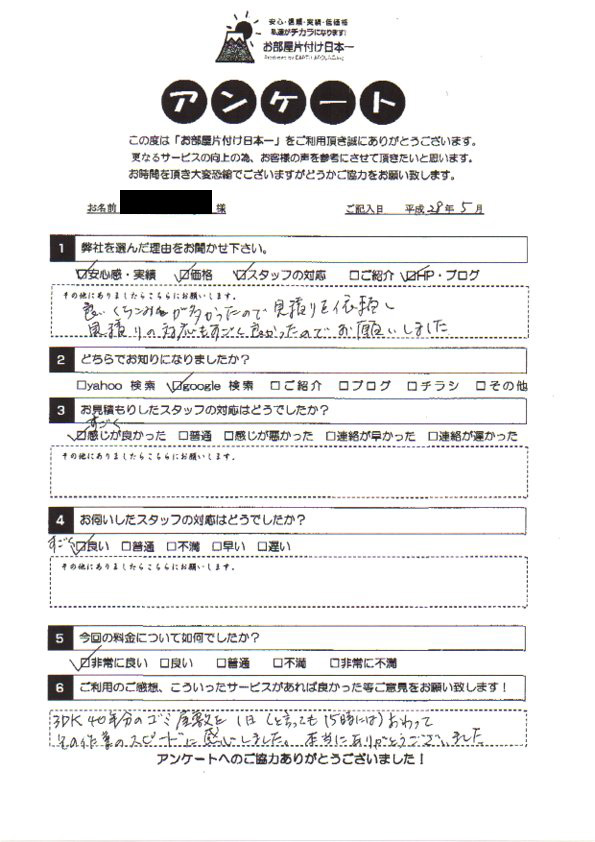 安心・信頼・実績・低価格
私達がチカラになります!
お部屋片付け日本一
アンケート
この度は「お部屋片付け日本一」をご利用頂き誠にありがとうございます。
更なるサービスの向上の為、お客様の声を参考にさせて頂きたいと思います。
お時間を頂き大変恐縮でございますがどうかご協力をお願い致します。
お名前 様 ご記入日 平成28年5月
1 弊社を選んだ理由をお聞かせ下さい。
☑安心感・実績 ☑価格 ☑スタッフの対応 □ご紹介 ☑HP・ブログ
その他にありましたらこちらにお願いします。
良い くちこみが多かったので 見積りを依頼し
見積りの対応もすごく良かったのでお願いしました
2 どちらでお知りになりましたか?
□yahoo 検索 ☑google 検索 □ご紹介 □ブログ □チラシ □その他
3 お見積もりしたスタッフの対応はどうでしたか?
すごく
☑感じが良かった □普通 □感じが悪かった □連絡が早かった □連絡が遅かった
その他にありましたらこちらにお願いします。
4 お伺いしたスタッフの対応はどうでしたか?
すごく ☑良い □普通 □不満 □早い □遅い
その他にありましたらこちらにお願いします。
5 今回の料金について如何でしたか?
☑非常に良い □良い □普通 □不満 □非常に不満
6 ご利用のご感想、こういったサービスがあれば良かった等ご意見をお願い致します!
3DK 40年分のゴミ屋敷を 1日(と言っても15時には)おわって
その作業のスピードに感心しました。本当にありがとうございました
アンケートへのご協力ありがとうございました!